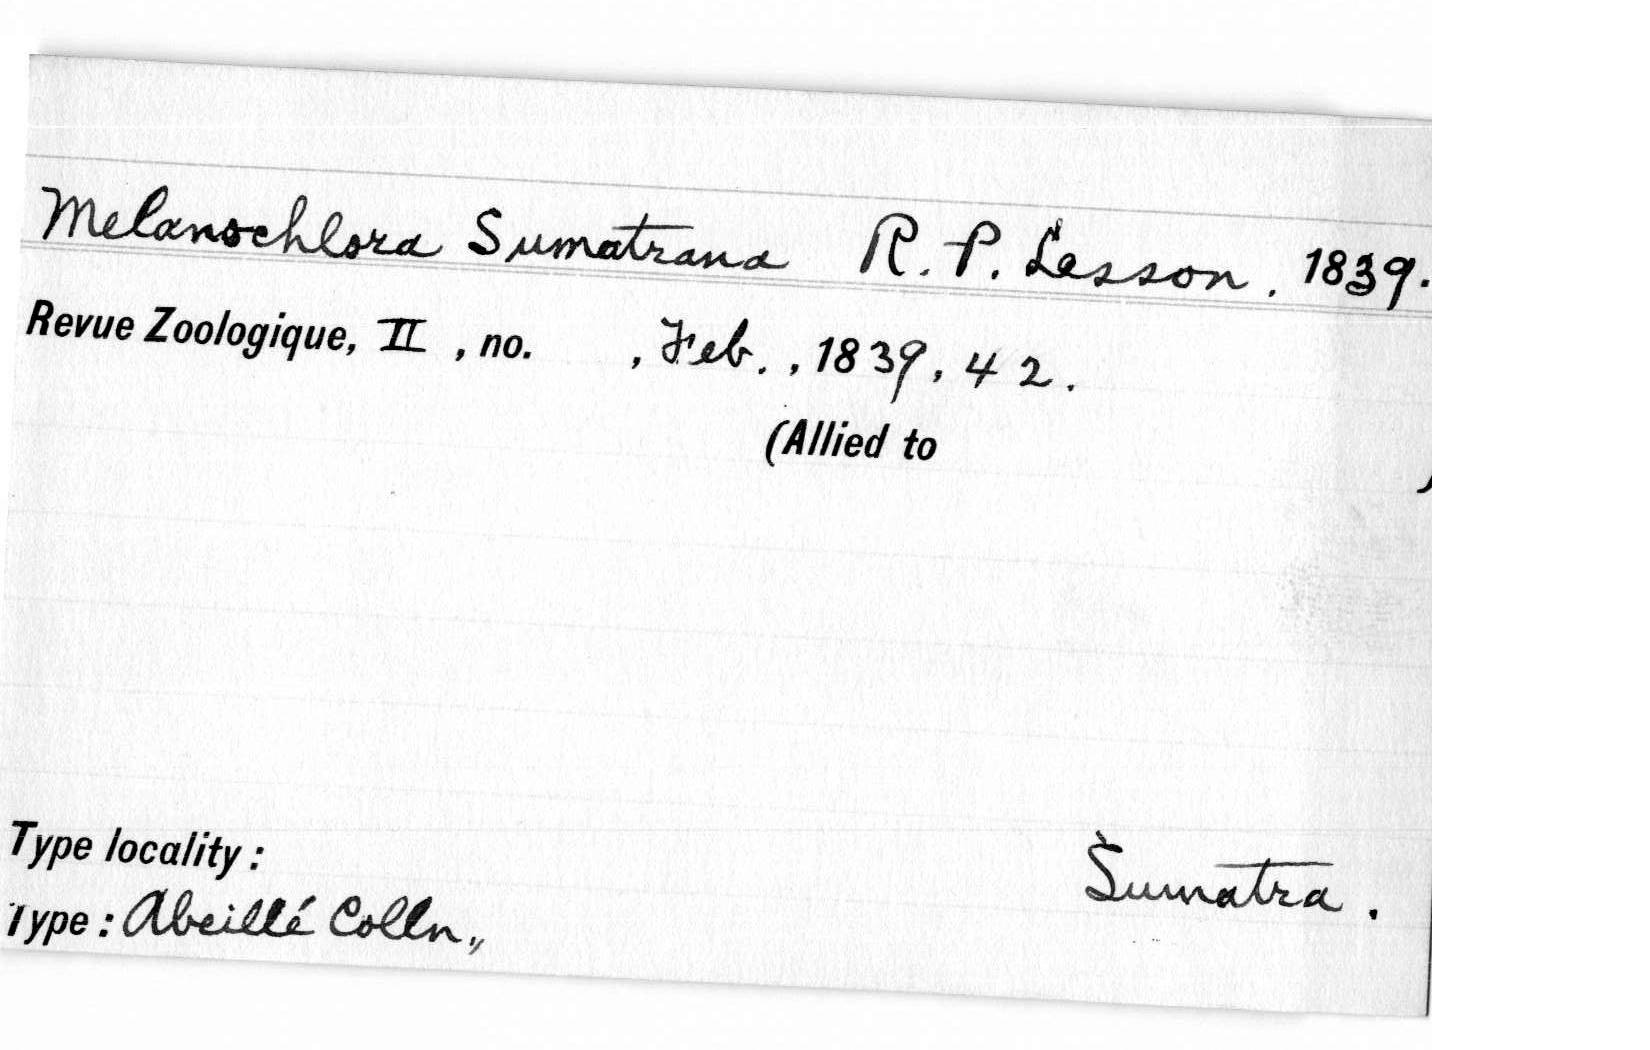 Melanochlora Sumatrana R. P. Lesson. 1839.
Revue Zoologique, II, no. , Feb., 1839, 42.
(Allied to )
Type locality: Sumatra.
Type: Abeillé Colln.,